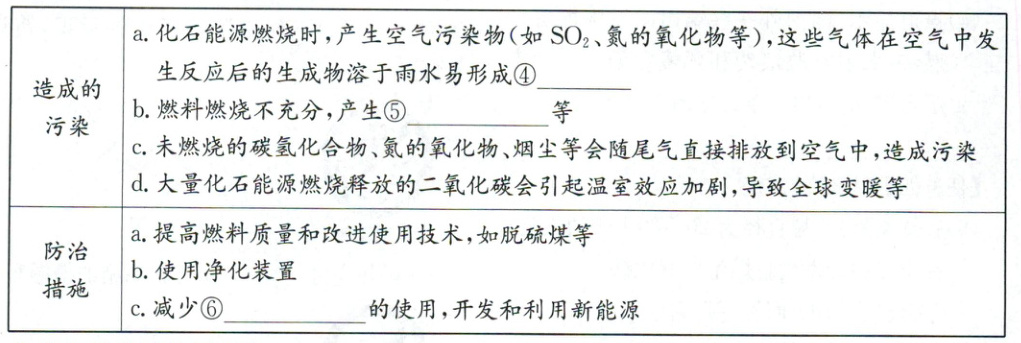 造成的
污染
a. 化石能源燃烧时,产生空气污染物(如 SO₂、氮的氧化物等),这些气体在空气中发
生反应后的生成物溶于雨水易形成④________
b. 燃料燃烧不充分,产生⑤____________等
c. 未燃烧的碳氢化合物、氮的氧化物、烟尘等会随尾气直接排放到空气中,造成污染
d. 大量化石能源燃烧释放的二氧化碳会引起温室效应加剧,导致全球变暖等
防治
措施
a. 提高燃料质量和改进使用技术,如脱硫煤等
b. 使用净化装置
c. 减少⑥____________的使用,开发和利用新能源